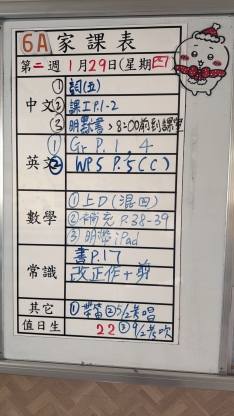 6A 家課表
第二週 1月29日(星期四)
中文 ① 詞(五)
② 課工P.1-2
③ 明默書，8:00前到課室
英文 ① Gr P.1, 4
② WPS P.5(C)
數學 ① 上D(混四)
② 補充 P.38-39
③ 明帶iPad
常識 書P.17
改正作+剪
其它 ① 帶笛 ② 5/2考唱
值日生 22 ③ 9/2考吹